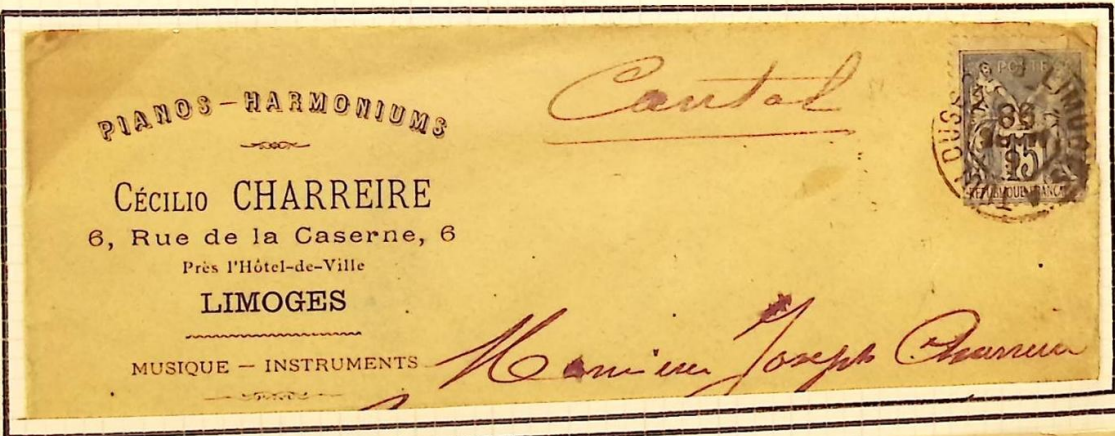 PIANOS - HARMONIUMS
CÉCILIO CHARREIRE
6, Rue de la Caserne, 6
Près l'Hôtel-de-Ville
LIMOGES
MUSIQUE — INSTRUMENTS
Cantal
POSTE
15
RÉPUBLIQUE FRANÇAISE
LIMOGES
86
Monsieur Joseph Charreire